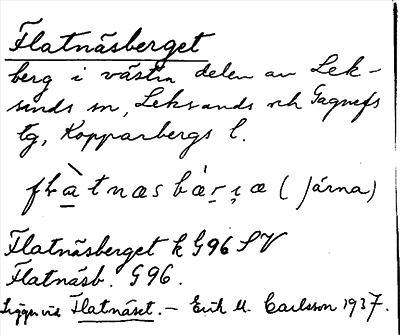 Flatnäsberget
berg i västra delen av Lek-
sands sn, Leksands och Gagnefs
tg, Kopparbergs l.
(Järna)
Flatnäsberget k G96 SV
Flatnäsb. G96.
Ligger vid Flatnäset. – Erik M. Carlsson 1937.